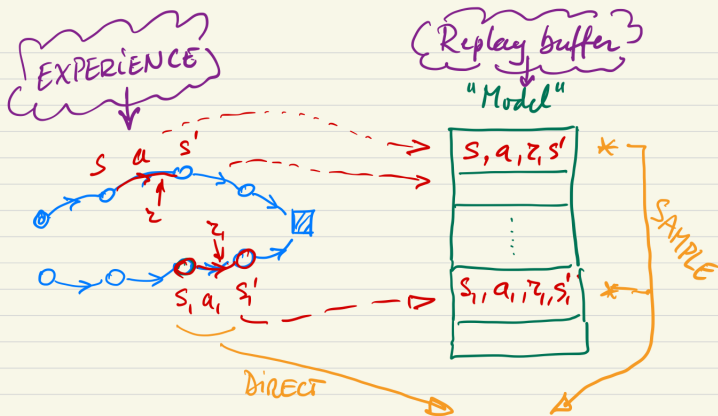 EXPERIENCE
Replay buffer
"Model"
s a s'
r
s, a, r, s'
r₁
s₁ a₁ s₁'
s₁, a₁, r₁, s₁'
SAMPLE
DIRECT